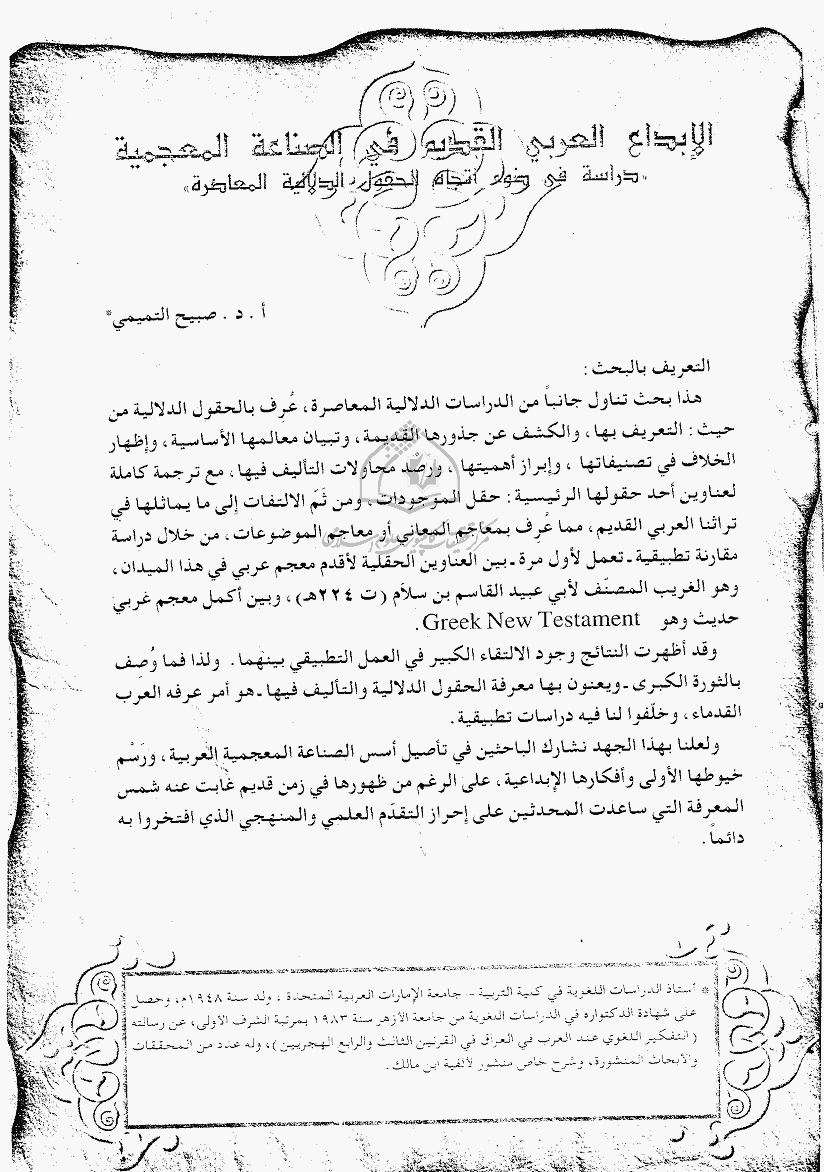 الإبداع العربي القديم في الصناعة المعجمية
«دراسة في ضوء اتجاه الحقول الدلالية المعاصرة»
أ . د . صبيح التميمي*
التعريف بالبحث :
هذا بحث تناول جانباً من الدراسات الدلالية المعاصرة، عُرِف بالحقول الدلالية من
حيث : التعريف بها، والكشف عن جذورها القديمة، وتبيان معالمها الأساسية، وإظهار
الخلاف في تصنيفاتها ، وإبراز أهميتها ، ورصْد محاولات التأليف فيها، مع ترجمة كاملة
لعناوين أحد حقولها الرئيسية : حقل الموجودات ، ومن ثَمّ الالتفات إلى ما يماثلها في
تراثنا العربي القديم، مما عُرِف بمعاجم المعاني أو معاجم الموضوعات، من خلال دراسة
مقارنة تطبيقية ـ تعمل لأول مرة ـ بين العناوين الحقلية لأقدم معجم عربي في هذا الميدان،
وهو الغريب المصنّف لأبي عبيد القاسم بن سلاّم (ت ٢٢٤هـ) ، وبين أكمل معجم غربي
حديث وهو Greek New Testament .
وقد أظهرت النتائج وجود الالتقاء الكبير في العمل التطبيقي بينهما. ولذا فما وُصِف
بالثورة الكبرى ـ ويعنون بها معرفة الحقول الدلالية والتأليف فيها ـ هو أمر عرفه العرب
القدماء، وخلّفوا لنا فيه دراسات تطبيقية.
ولعلنا بهذا الجهد نشارك الباحثين في تأصيل أسس الصناعة المعجمية العربية، ورَسْم
خيوطها الأولى وأفكارها الإبداعية، على الرغم من ظهورها في زمن قديم غابت عنه شمس
المعرفة التي ساعدت المحدثين على إحراز التقدّم العلمي والمنهجي الذي افتخروا به
دائماً.
* أستاذ الدراسات اللغوية في كلية التربية - جامعة الإمارات العربية المتحدة ، ولد سنة ١٩٤٨م، وحصل
على شهادة الدكتوراه في الدراسات اللغوية من جامعة الأزهر سنة ١٩٨٣ بمرتبة الشرف الأولى، عن رسالته
(التفكير اللغوي عند العرب في العراق في القرنين الثالث والرابع الهجريين)، وله عدد من المحققات
والأبحاث المنشورة، وشرح خاص منشور لألفية ابن مالك.